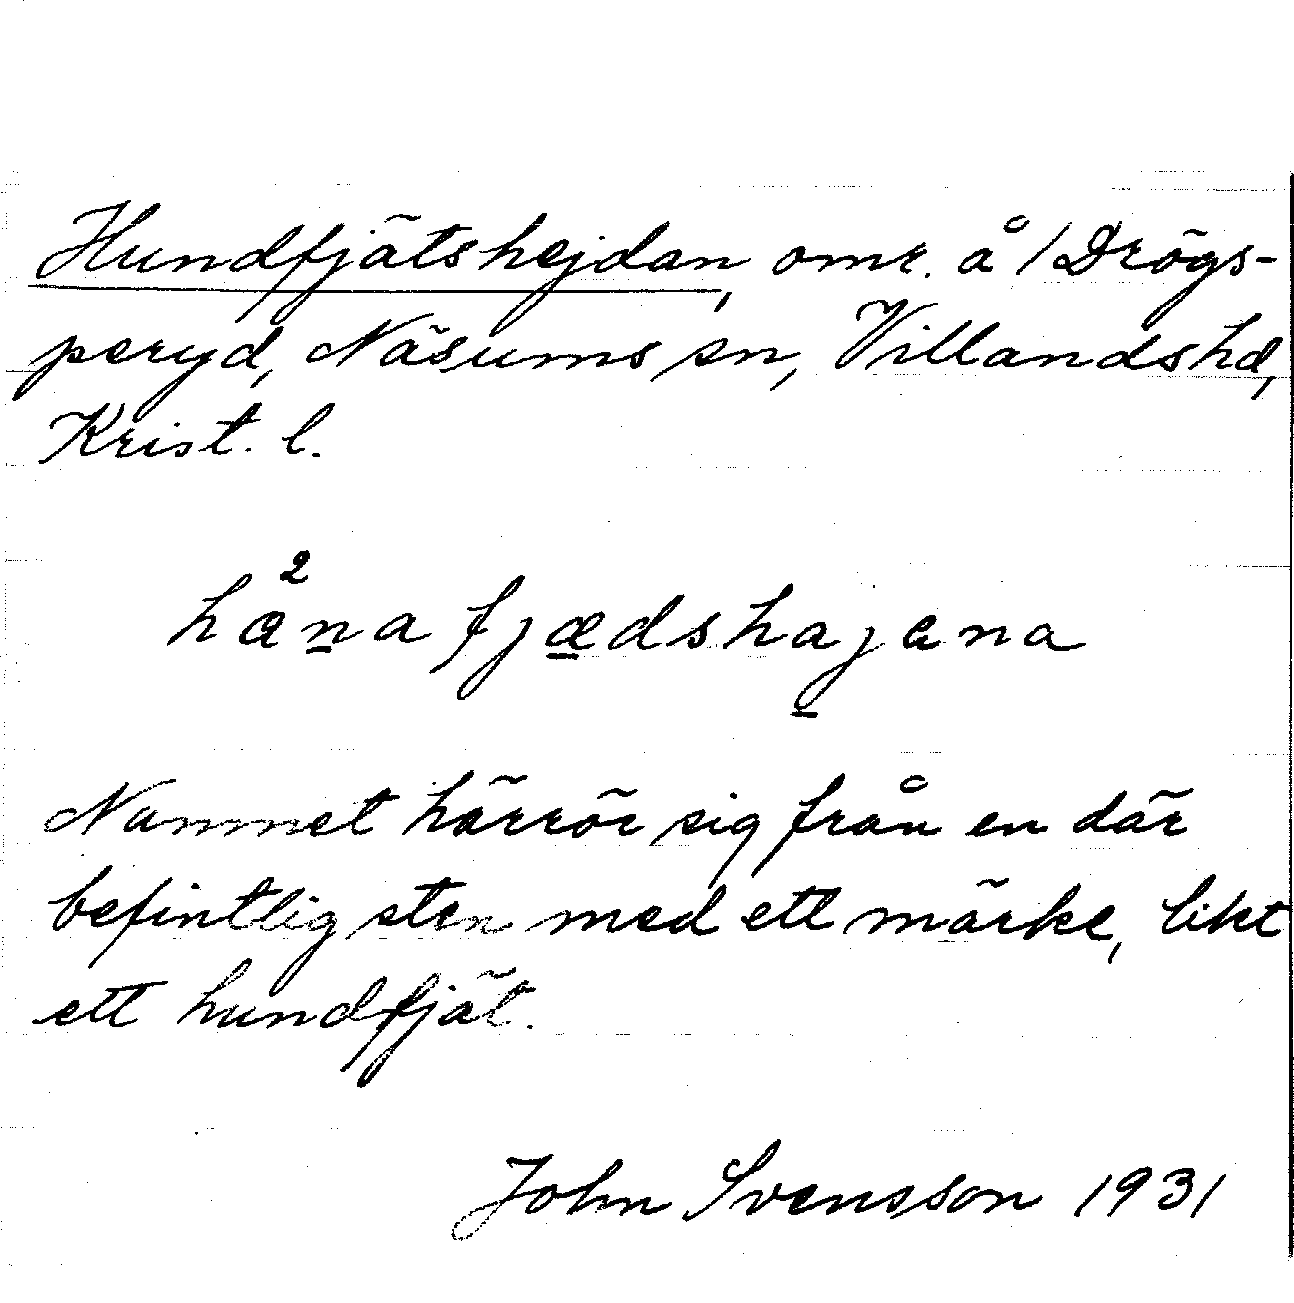 Hundfjätshejdan, omr. å 1 Drögs-
peryd, Näsums sn, Villands hd,
Krist. l.
2
hånafjædshajana
Namnet härrör sig från en där
befintlig sten med ett märke, likt
ett hundfjät.
John Svensson 1931